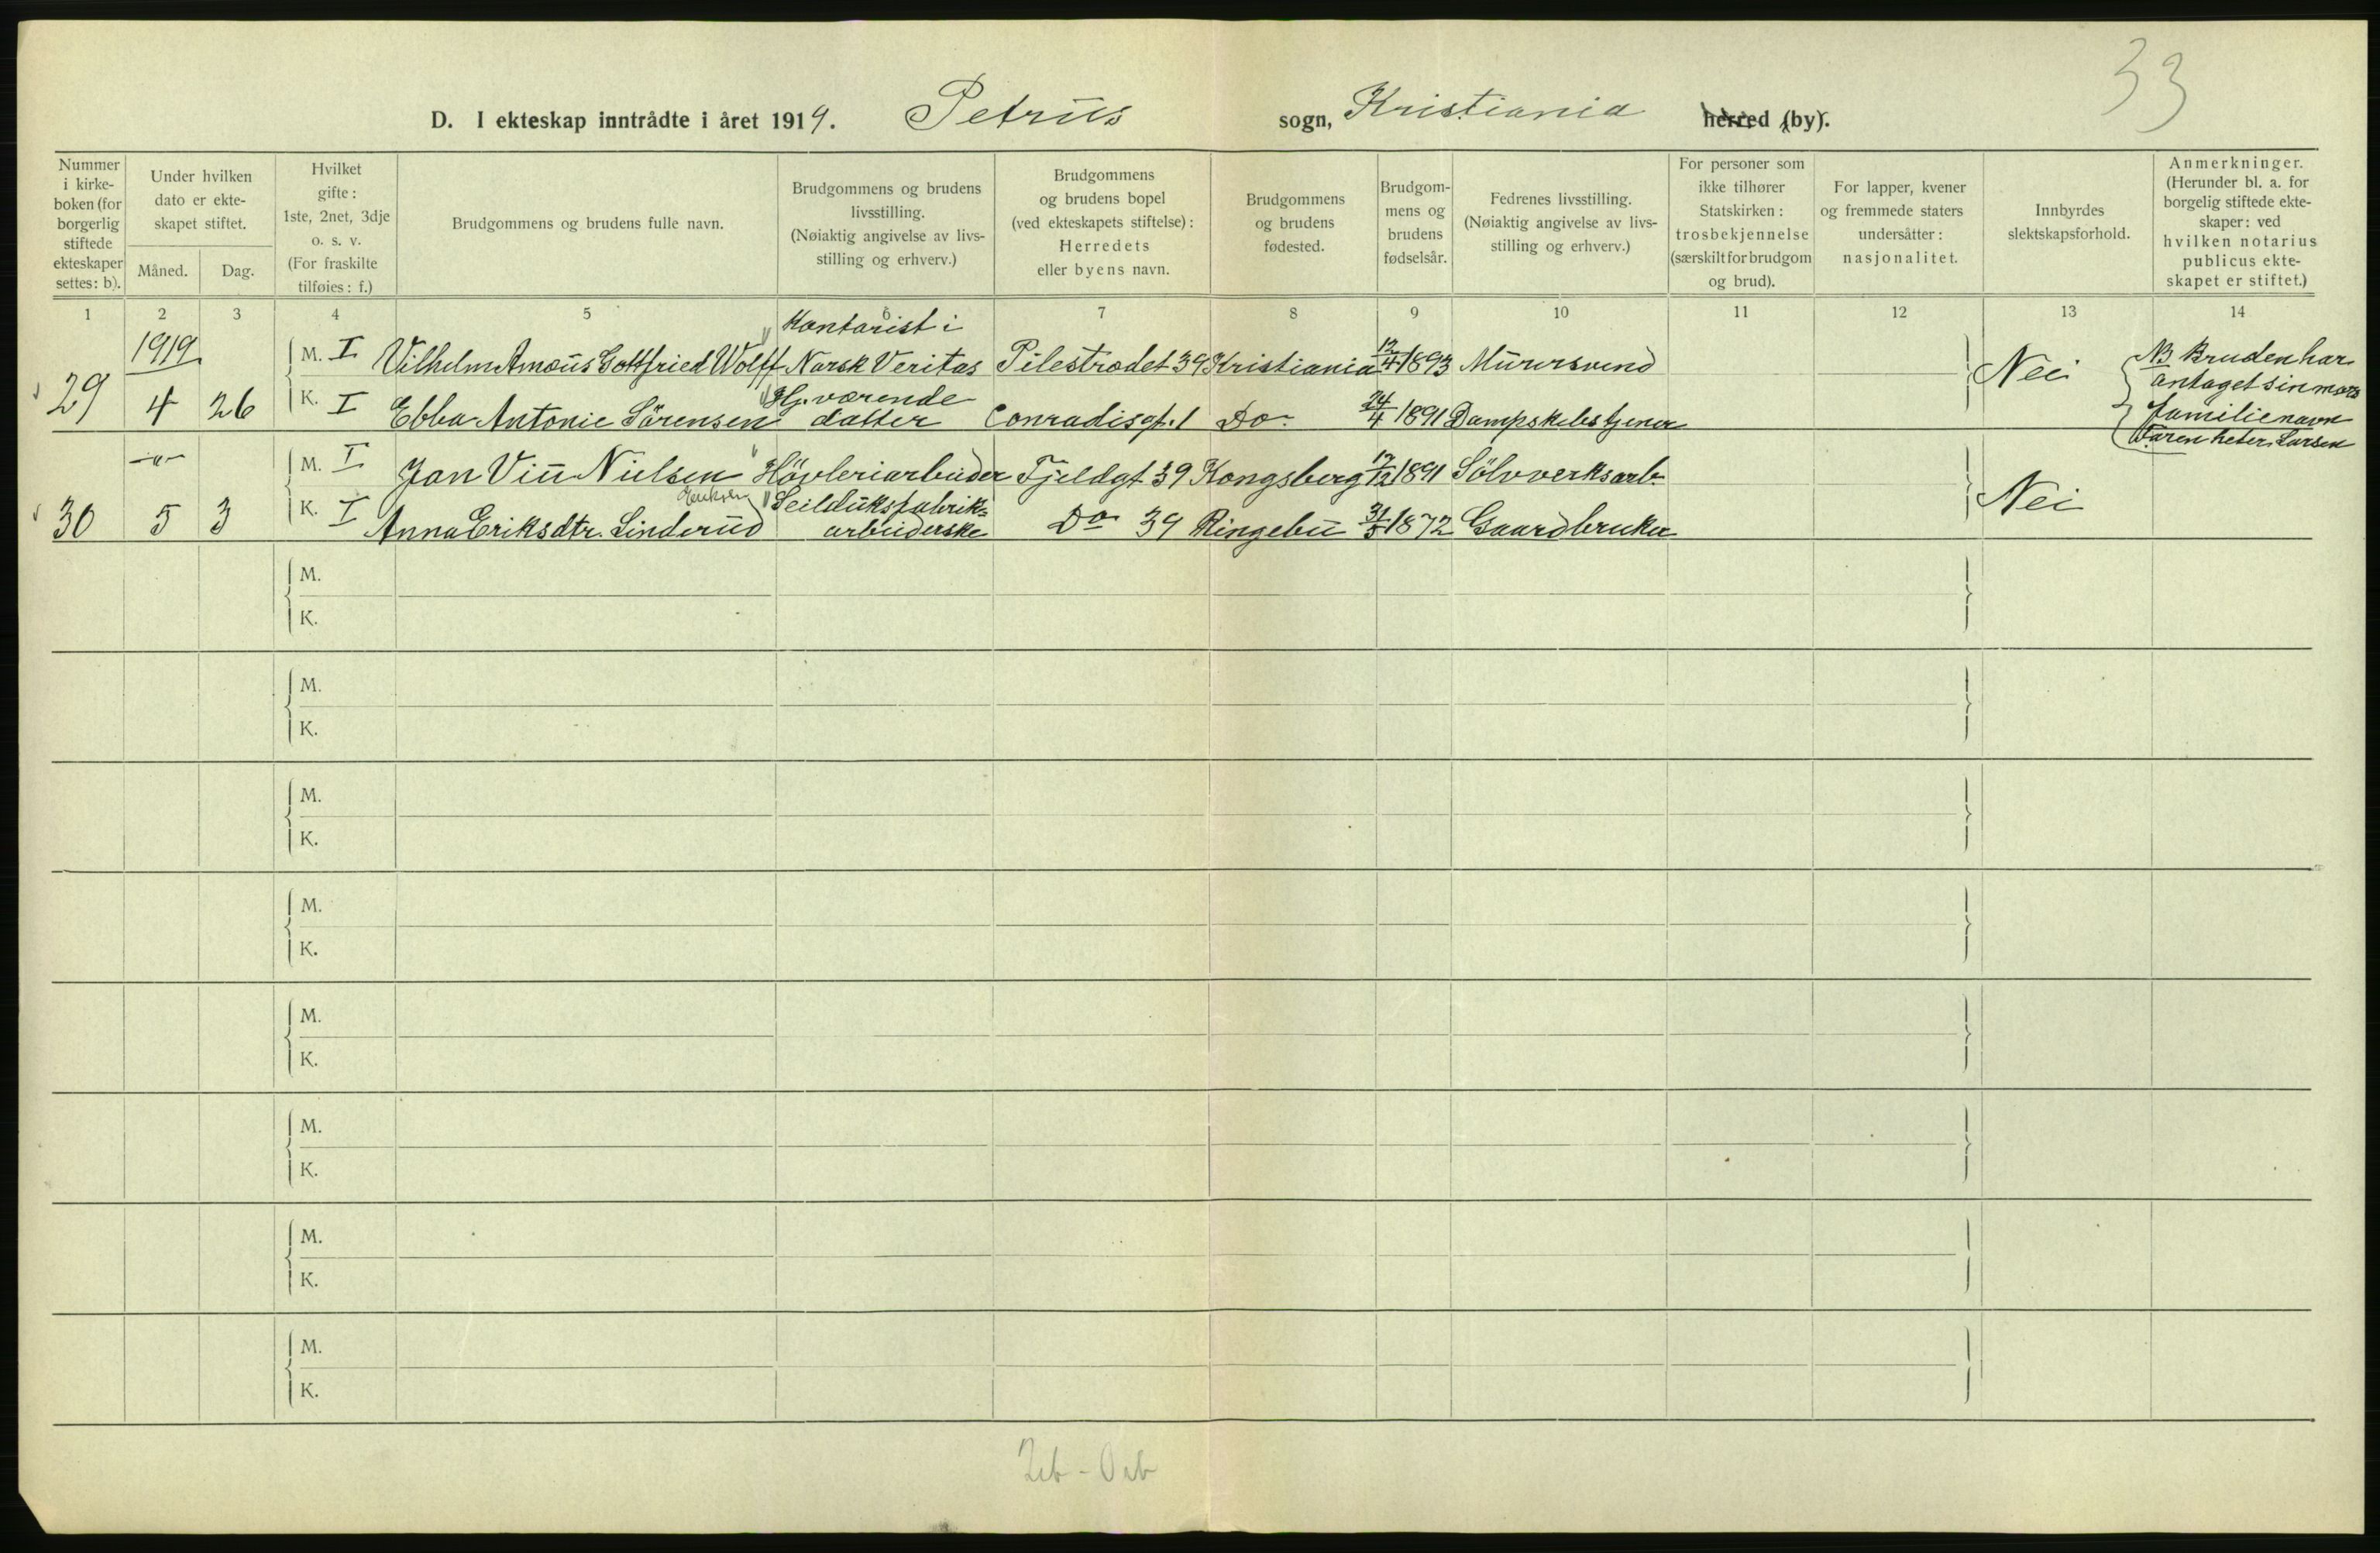 33
D. I ekteskap inntrådte i året 1919. Petrus sogn, Kristiania herred (by).
Nummer i kirke-boken (for borgerlig stiftede ekteskaper settes: b).
Under hvilken dato er ekte-skapet stiftet.
Måned. Dag.
Hvilket gifte: 1ste, 2net, 3dje o. s. v. (For fraskilte tilføies: f.)
Brudgommens og brudens fulle navn.
Brudgommens og brudens livsstilling. (Nøiaktig angivelse av livs-stilling og erhverv.)
Brudgommens og brudens bopel (ved ekteskapets stiftelse): Herredets eller byens navn.
Brudgommens og brudens fødested.
Brudgom-mens og brudens fødselsår.
Fedrenes livsstilling. (Nøiaktig angivelse av livs-stilling og erhverv.)
For personer som ikke tilhører Statskirken: trosbekjennelse (særskilt for brudgom og brud).
For lapper, kvener og fremmede staters undersåtter: nasjonalitet.
Innbyrdes slektskapsforhold.
Anmerkninger. (Herunder bl. a. for borgelig stiftede ekte-skaper: ved hvilken notarius publicus ekte-skapet er stiftet.)
1 2 3 4 5 6 7 8 9 10 11 12 13 14
1919 M. I Vilhelm Amæus Gottfried Wolff Kontorist i Norsk Veritas Pilestrædet 39 Kristiania 12/4 1893 Murersvend
29 4 26 K. I Ebba Antonie Sörensen Hj. værende datter Conradisgt. 1 Do 24/4 1891 Dampskibstjener Nei NB Bruden har antaget sin mors familienavn Faren heter Larsen
-"- M. I Jon Viu Nielsen Hövleriarbeider Fjeldgt 39 Kongsberg 17/12 1891 Sölvverksarb.
30 5 3 K. I Anna Eriksdtr. Linderud Eriksen Seilduksfabrik-arbeiderske Do 39 Ringebu 31/5 1872 Gaardbruker Nei
M.
K.
M.
K.
M.
K.
M.
K.
M.
K.
M.
K.
M.
K.
M.
K.